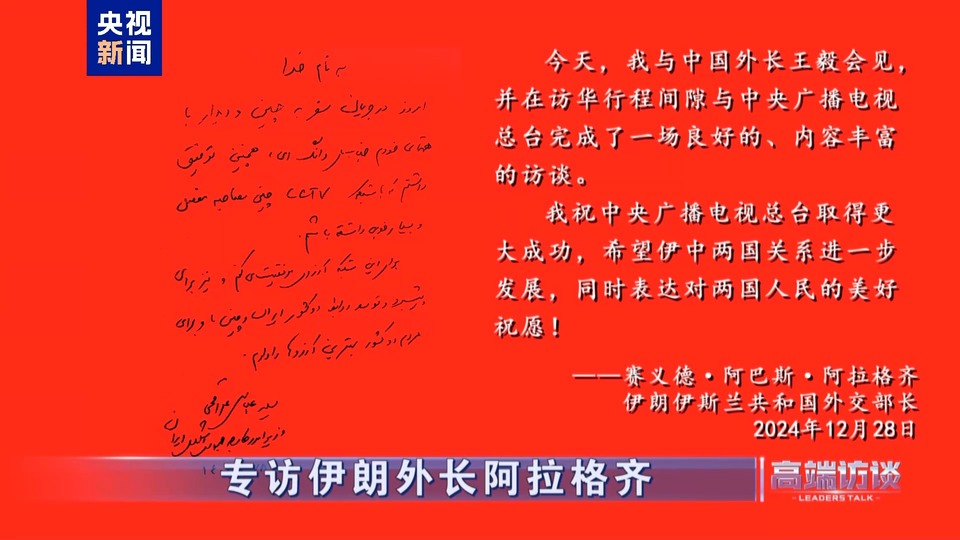 央视
新闻
به نام خدا
امروز در جریان سفر به چین و دیدار با
همتای خودم جناب وانگ ای، همچنین توفیق
داشتم که با شبکه CCTV چین مصاحبه
و بسیار خوب داشته باشم.
برای این شبکه آرزوی موفقیت می‌کنم و نیز برای
پیشبرد و توسعه روابط دو کشور ایران و چین و برای
مردم دو کشور بهترین آرزوها را دارم.
سید عباس عراقچی
وزیر امور خارجه جمهوری اسلامی ایران
今天，我与中国外长王毅会见，
并在访华行程间隙与中央广播电视
总台完成了一场良好的、内容丰富
的访谈。
我祝中央广播电视总台取得更
大成功，希望伊中两国关系进一步
发展，同时表达对两国人民的美好
祝愿！
——赛义德·阿巴斯·阿拉格齐
伊朗伊斯兰共和国外交部长
2024年12月28日
专访伊朗外长阿拉格齐
高端访谈
LEADERS TALK